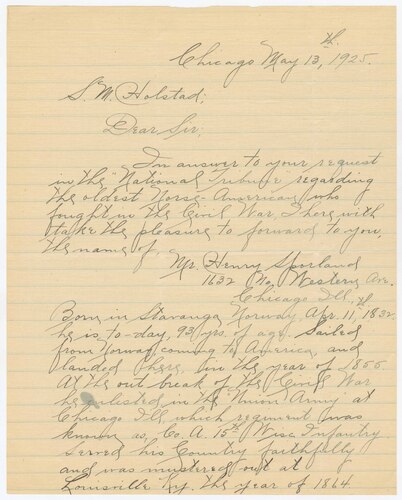 Chicago May 13th, 1925.
S. M. Holstad;
Dear Sir;
In answer to your request
in the "National Tribune" regarding
the oldest Norse-American who
fought in the Civil War, I here with
take the pleasure to forward to you,
the name of,
Mr. Henry Sporland
1632 No. Western Ave.
Chicago Ill.
Born in Stavanger Norway, Apr. 11th, 1832.
he is to-day, 93 yrs. of age. Sailed
from Norway coming to America, and
landed here, in the year of 1855
At the out break of the Civil War
he enlisted in the Union Army at
Chicago Ill which regiment was
known as, Co. A. 15th Wisc. Infantry
served his Country faithfully
and was mustered out at
Louisville Ky. the year of 1864.